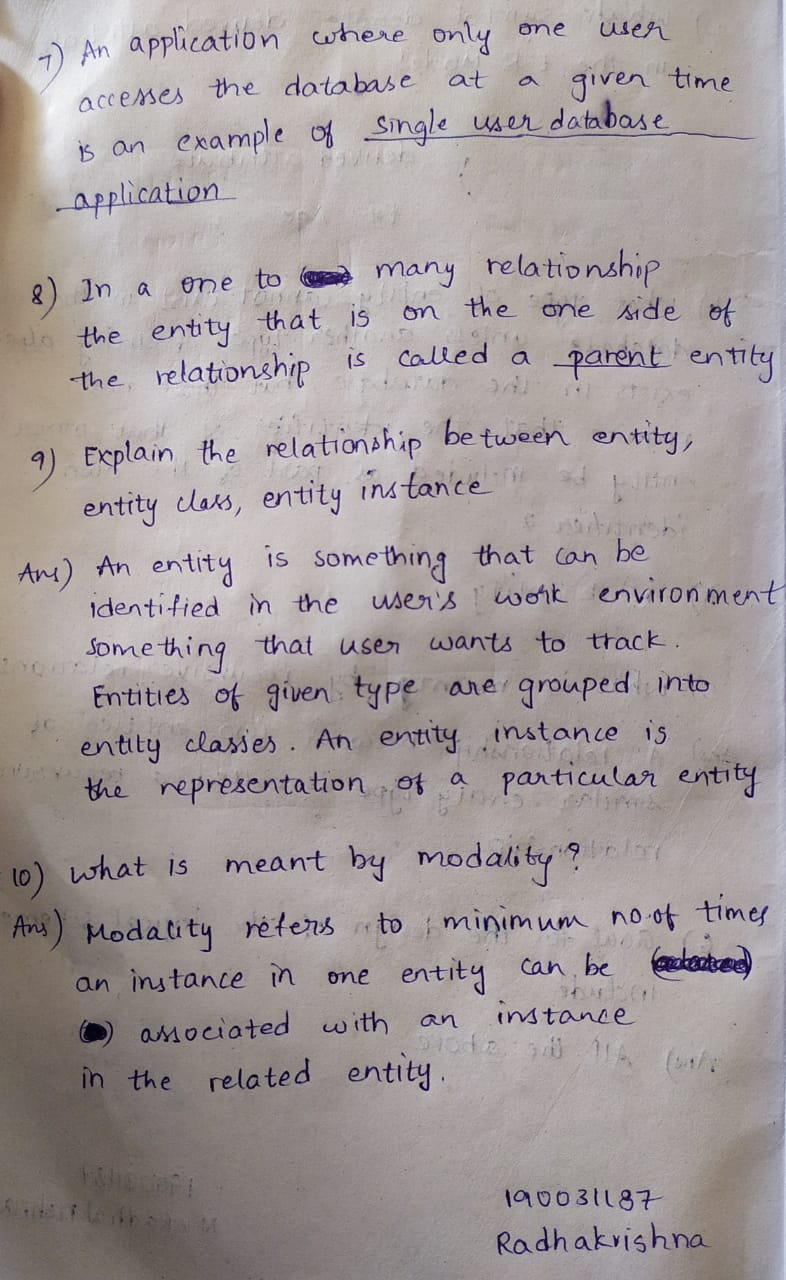 7) An application where only one user
accesses the database at a given time
is an example of single user database
application
8) In a one to many relationship
the entity that is on the one side of
the relationship is called a parent entity
9) Explain the relationship between entity,
entity class, entity instance
Ans) An entity is something that can be
identified in the user's work environment
something that user wants to track.
Entities of given type are grouped into
entity classes. An entity instance is
the representation of a particular entity
10) what is meant by modality?
Ans) Modality refers to minimum no.of times
an instance in one entity can be
associated with an instance
in the related entity.
190031187
Radhakrishna